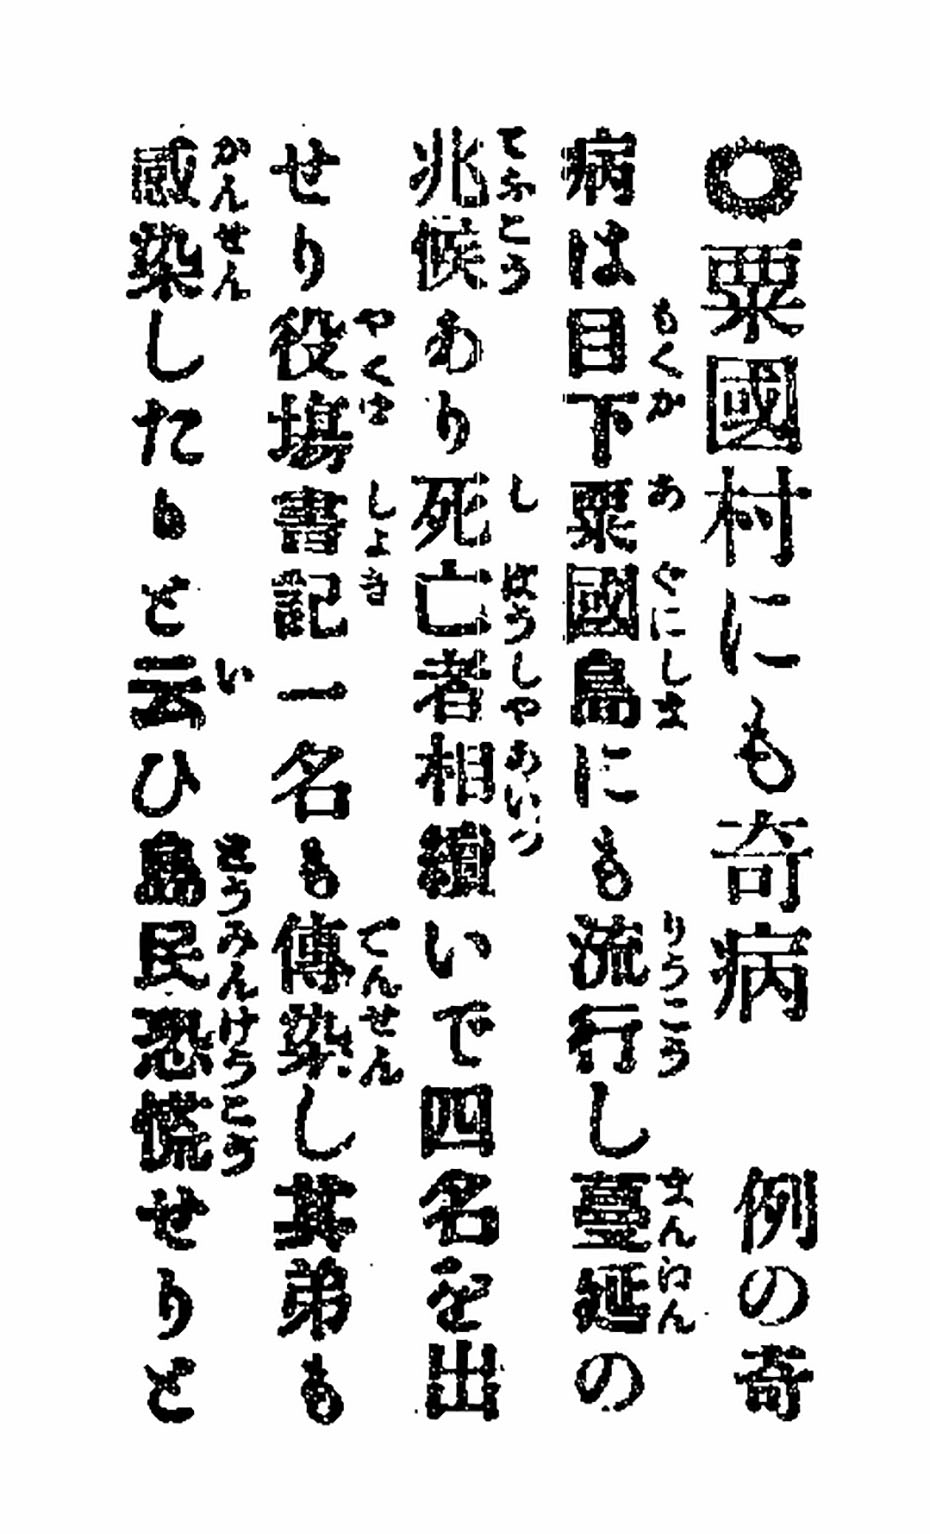 〇粟國村にも奇病　例の奇
病は目下粟國島にも流行し蔓延の
兆候あり死亡者相續いで四名を出
せり役塲書記一名も傳染し其弟も
感染したりと云ひ島民恐慌せりと